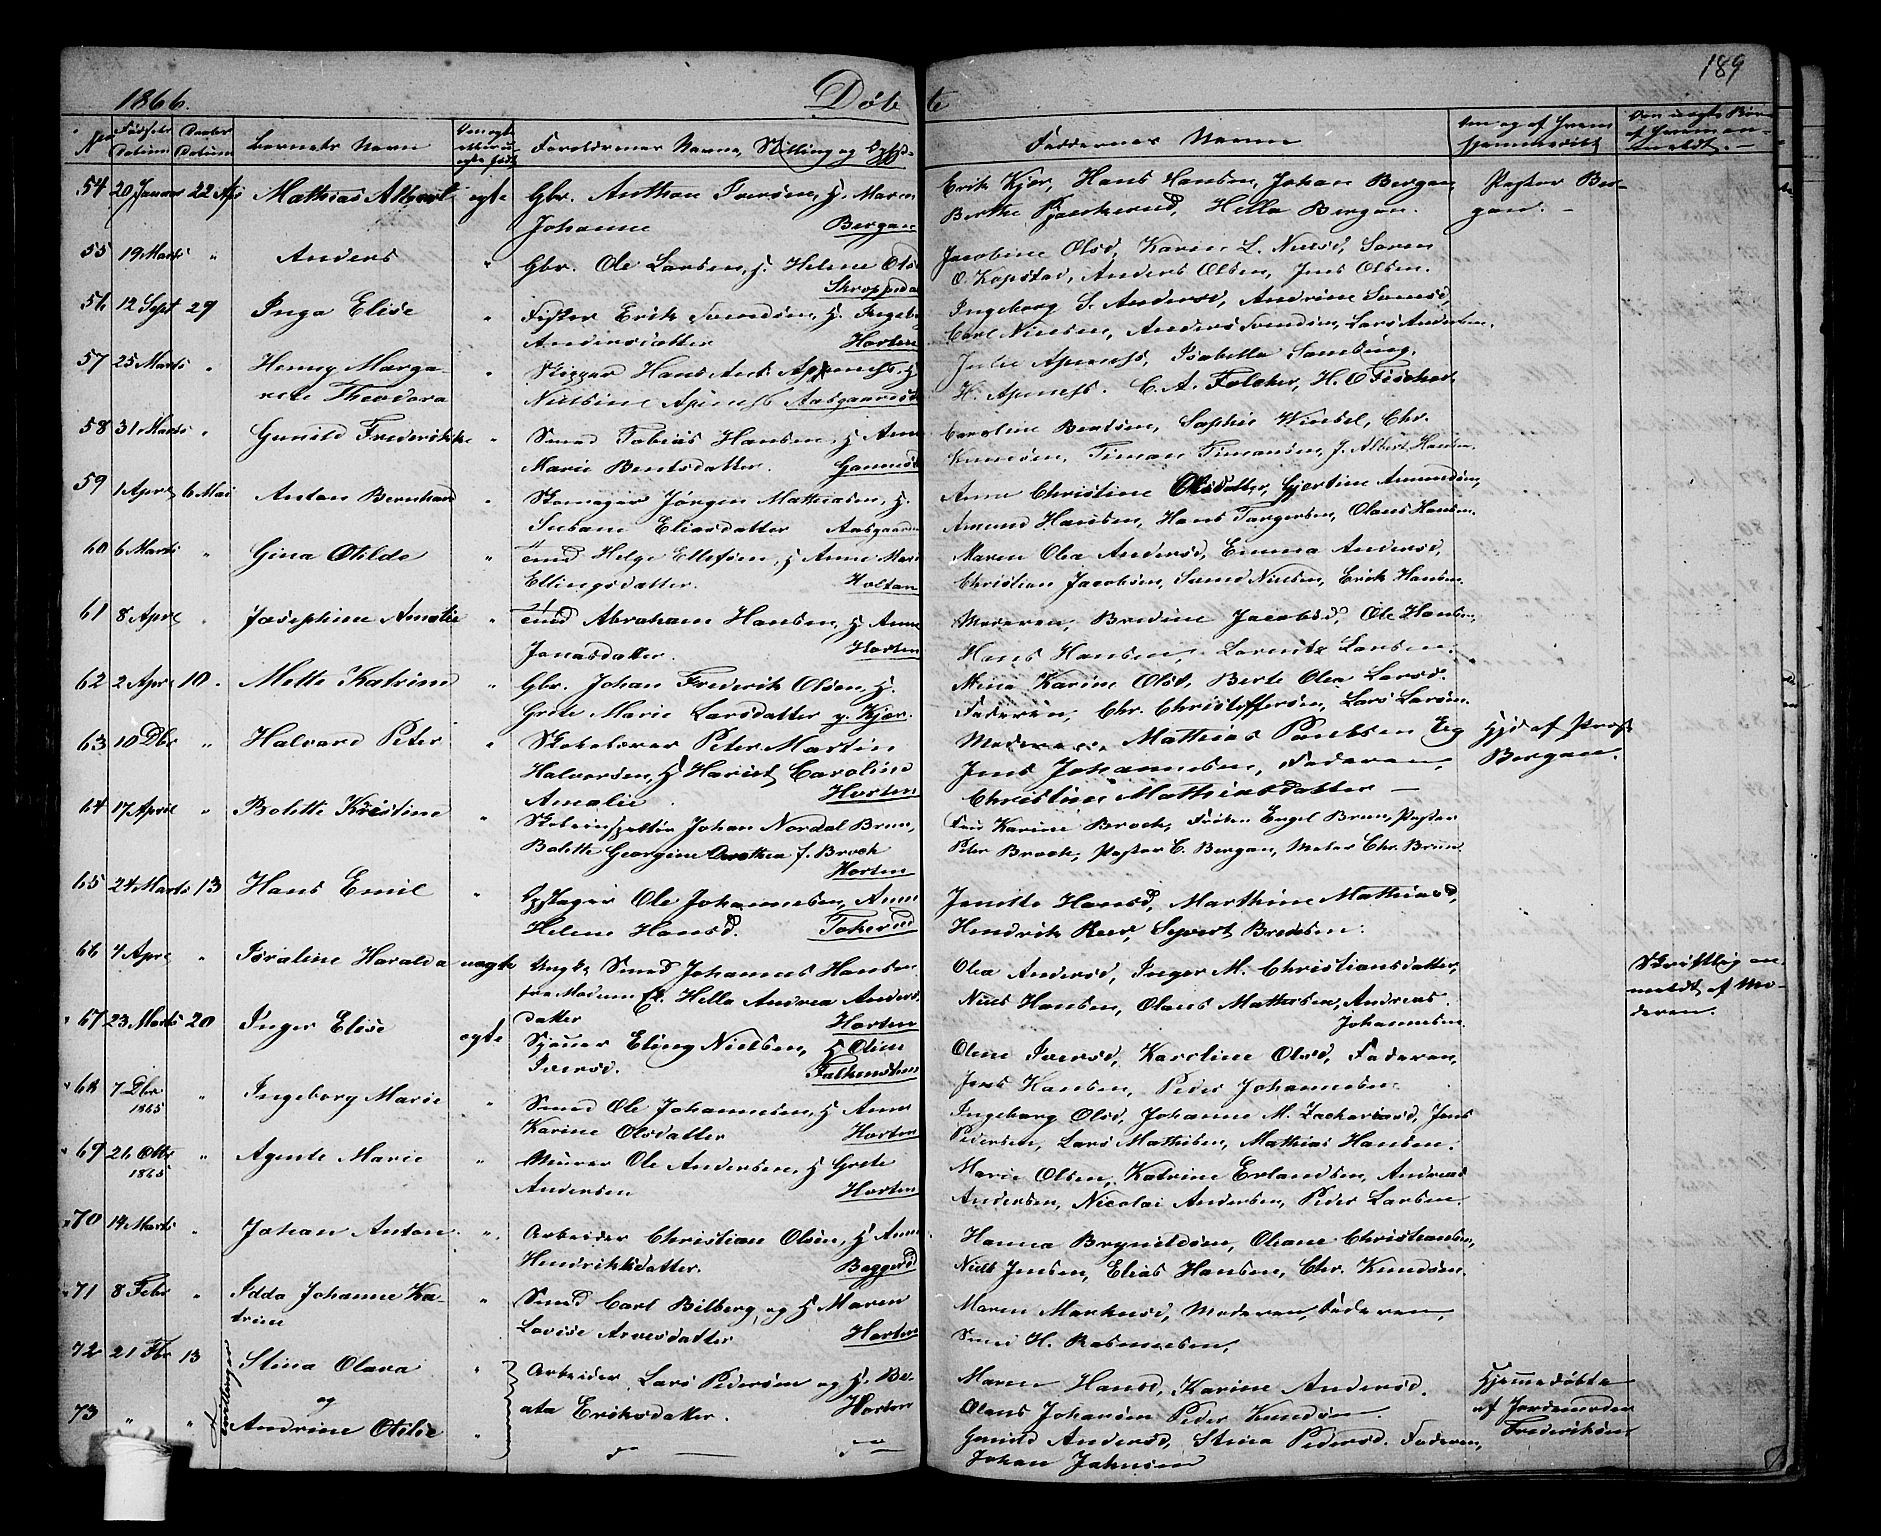 189
1866.
Døbte
No
Fødsels Datum
Daabs Datum
Barnets Navn
Om ægte eller uægte født
Forældrenes Navne, Stilling og
Faddernes Navne
Om og af hvem hjemmedøbt
54 20 Januar 22 Apr Mathias Albert ægte Gbr. Anthon Iversen, H. Maren
Johanne Bergan
Erik Kjær, Hans Hansen, Johan Bergan
Berthe, Hella Bergan.
Pastor Bergan.
55 19 Marts " Anders " Gbr. Ole Larsen, H. Helene Ols
Skoppeda
Jacobine Olsd, Karen L. Nielsd, Søren
O. Kopstad, Anders Olsen, Jens Olsen.
56 12 Sept 29 Inga Elise " Fisker Erik Svendsen, H. Ingeb
Andersdatter Horten
Ingeborg S. Andersd, Andrine
Carl Nielsen, Anders Svendsen, Lars Andersen.
57 25 Marts " Henny Marga-
rete Theodora " Skipper Hans Ant. Apenes, H
Nielsine Apenes Aasgaards
Julie Apenes, Isabella
H. Apenes. C. A. Folcher, H. O Fischer
58 31 Marts " Gunild Frederikke " Smed Tobias Hansen, H Anne
Marie Bentsdatter.
Caroline Bentsen, Sophie Wensel, Chr.
Knudsen, Timan Timansen, J. Albert Hansen
59 1 Apr 6 Mai Anton Bernhard " Skomager Jørgen Mathisen, H.
Susane Eliasdatter Aasgaard
Anne Christine Olsdatter, Gjertine Amundsen,
Amund Hansen, Hans Torgersen, Olaus Hansen.
60 6 Marts " Gina Otilde " Smed Helge Ellefsen, H Anne Mari
Ellingsdatter. Holtan
Maren Olea Andersd, Emma Andersd,
Christian Jacobsen, Smed Nielsen, Erik Hansen
61 8 Apr " Josephine Amalie " Smed Abraham Hansen, H Anne
Jonasdatter. Horten
Moderen, Bredine Jacobsd, Ole Hansen,
Hans Hansen, Larsen.
62 2 Apr 10. Mette Katrine " Gbr. Johan Frederik Olsen, H.
Grete Marie Larsdatter Kjær.
Mina Karine Olsd, Berte Olea Larsd.
Faderen, Chr. Christoffersen, Lars Larsen
63 10 Dbr " Halvard Peter " Skolelærer Peter Martin
Halvorsen, H Hariet Caroline
Amalie. Horten
Moderen, Mathias Paulsen
Jens Johannesen, Faderen,
Christine Mathiasdatter
Hjd af Past
Bergan.
64 17 April " Bolette Kristine " Skoleinspektør Johan Nordal Brun,
Bolette Georgine Dorothea f. Broch
Horten
Frue Karine Broch, Frøken Engel Brun, Pastor
Peter Broch, Pastor C. Bergan, Chr. Brun
65 24 Marts 13 Hans Emil " Opsteger Ole Johannesen, Anne
Helene Hansd. Tokerud
Jenette Hansd, Marthine Mathiasd,
Hendrik Reer, Syvert Bredesen.
66 4 Apr " Iraline Haralda uægte Ungk. Smed Johannes Hansen
fra Modum. Hella Andrea Anders
datter Horten
Olea Andersd, Inger M. Christiansdatter,
Niels Hansen, Olaus Mathisen, Andreas
Johannesen.
Skriftlig an-
meldt af Mo-
deren.
67 23 Marts 20 Inger Elise ægte Eling Nielsen, H Oline
Iversd. Falkensten
Olene Iversd, Karoline Olsd, Faderen,
Jens Hansen, Peder Johannesen.
68 7 Dbr 1865 " Ingeborg Marie " Smed Ole Johannesen, H Anne
Karine Olsdatter Horten
Ingeborg Olsd, Johanne M. Zachariasd, Jens
Pedersen, Lars Mathisen, Mathias Hansen.
69 21 Obr 1865 " Agente Marie " Murer Ole Andersen, H Grete
Andersen Horten
Marie Olsen, Katrine Erlandsen, Andreas
Andersen, Nicolai Andersen, Peder Larsen.
70 14 Marts " Johan Anton " Arbeider Christian Olsen, H Anne
Hendriksdatter. Baggerød
Hanna Brynildsen, Oleane Christiansen,
Niels Jensen, Elias Hansen, Chr. Knudsen.
71 8 Febr " Idda Johanne Ka-
trine " Smed Carl Bilberg, og H Maren
Lovise Arvesdatter Horten
Maren Markusd, Moderen, Faderen,
Smed H. Rasmussen,
72 21 Fbr 13 Stina Olava
og " Arbeider Lars Pedersen og H. Be-
ata Eriksdatter. Horten
Maren Hansd, Karine Andersd.
Olaus Johansen Peder Knudsen.
Hjemmedøbte
af Jordemoder
Frederiksen
73 " " Tvillinger Andrine Otilie "
Gunild Andersd, Stina Pedersd. Faderen,
Johan Johnsen